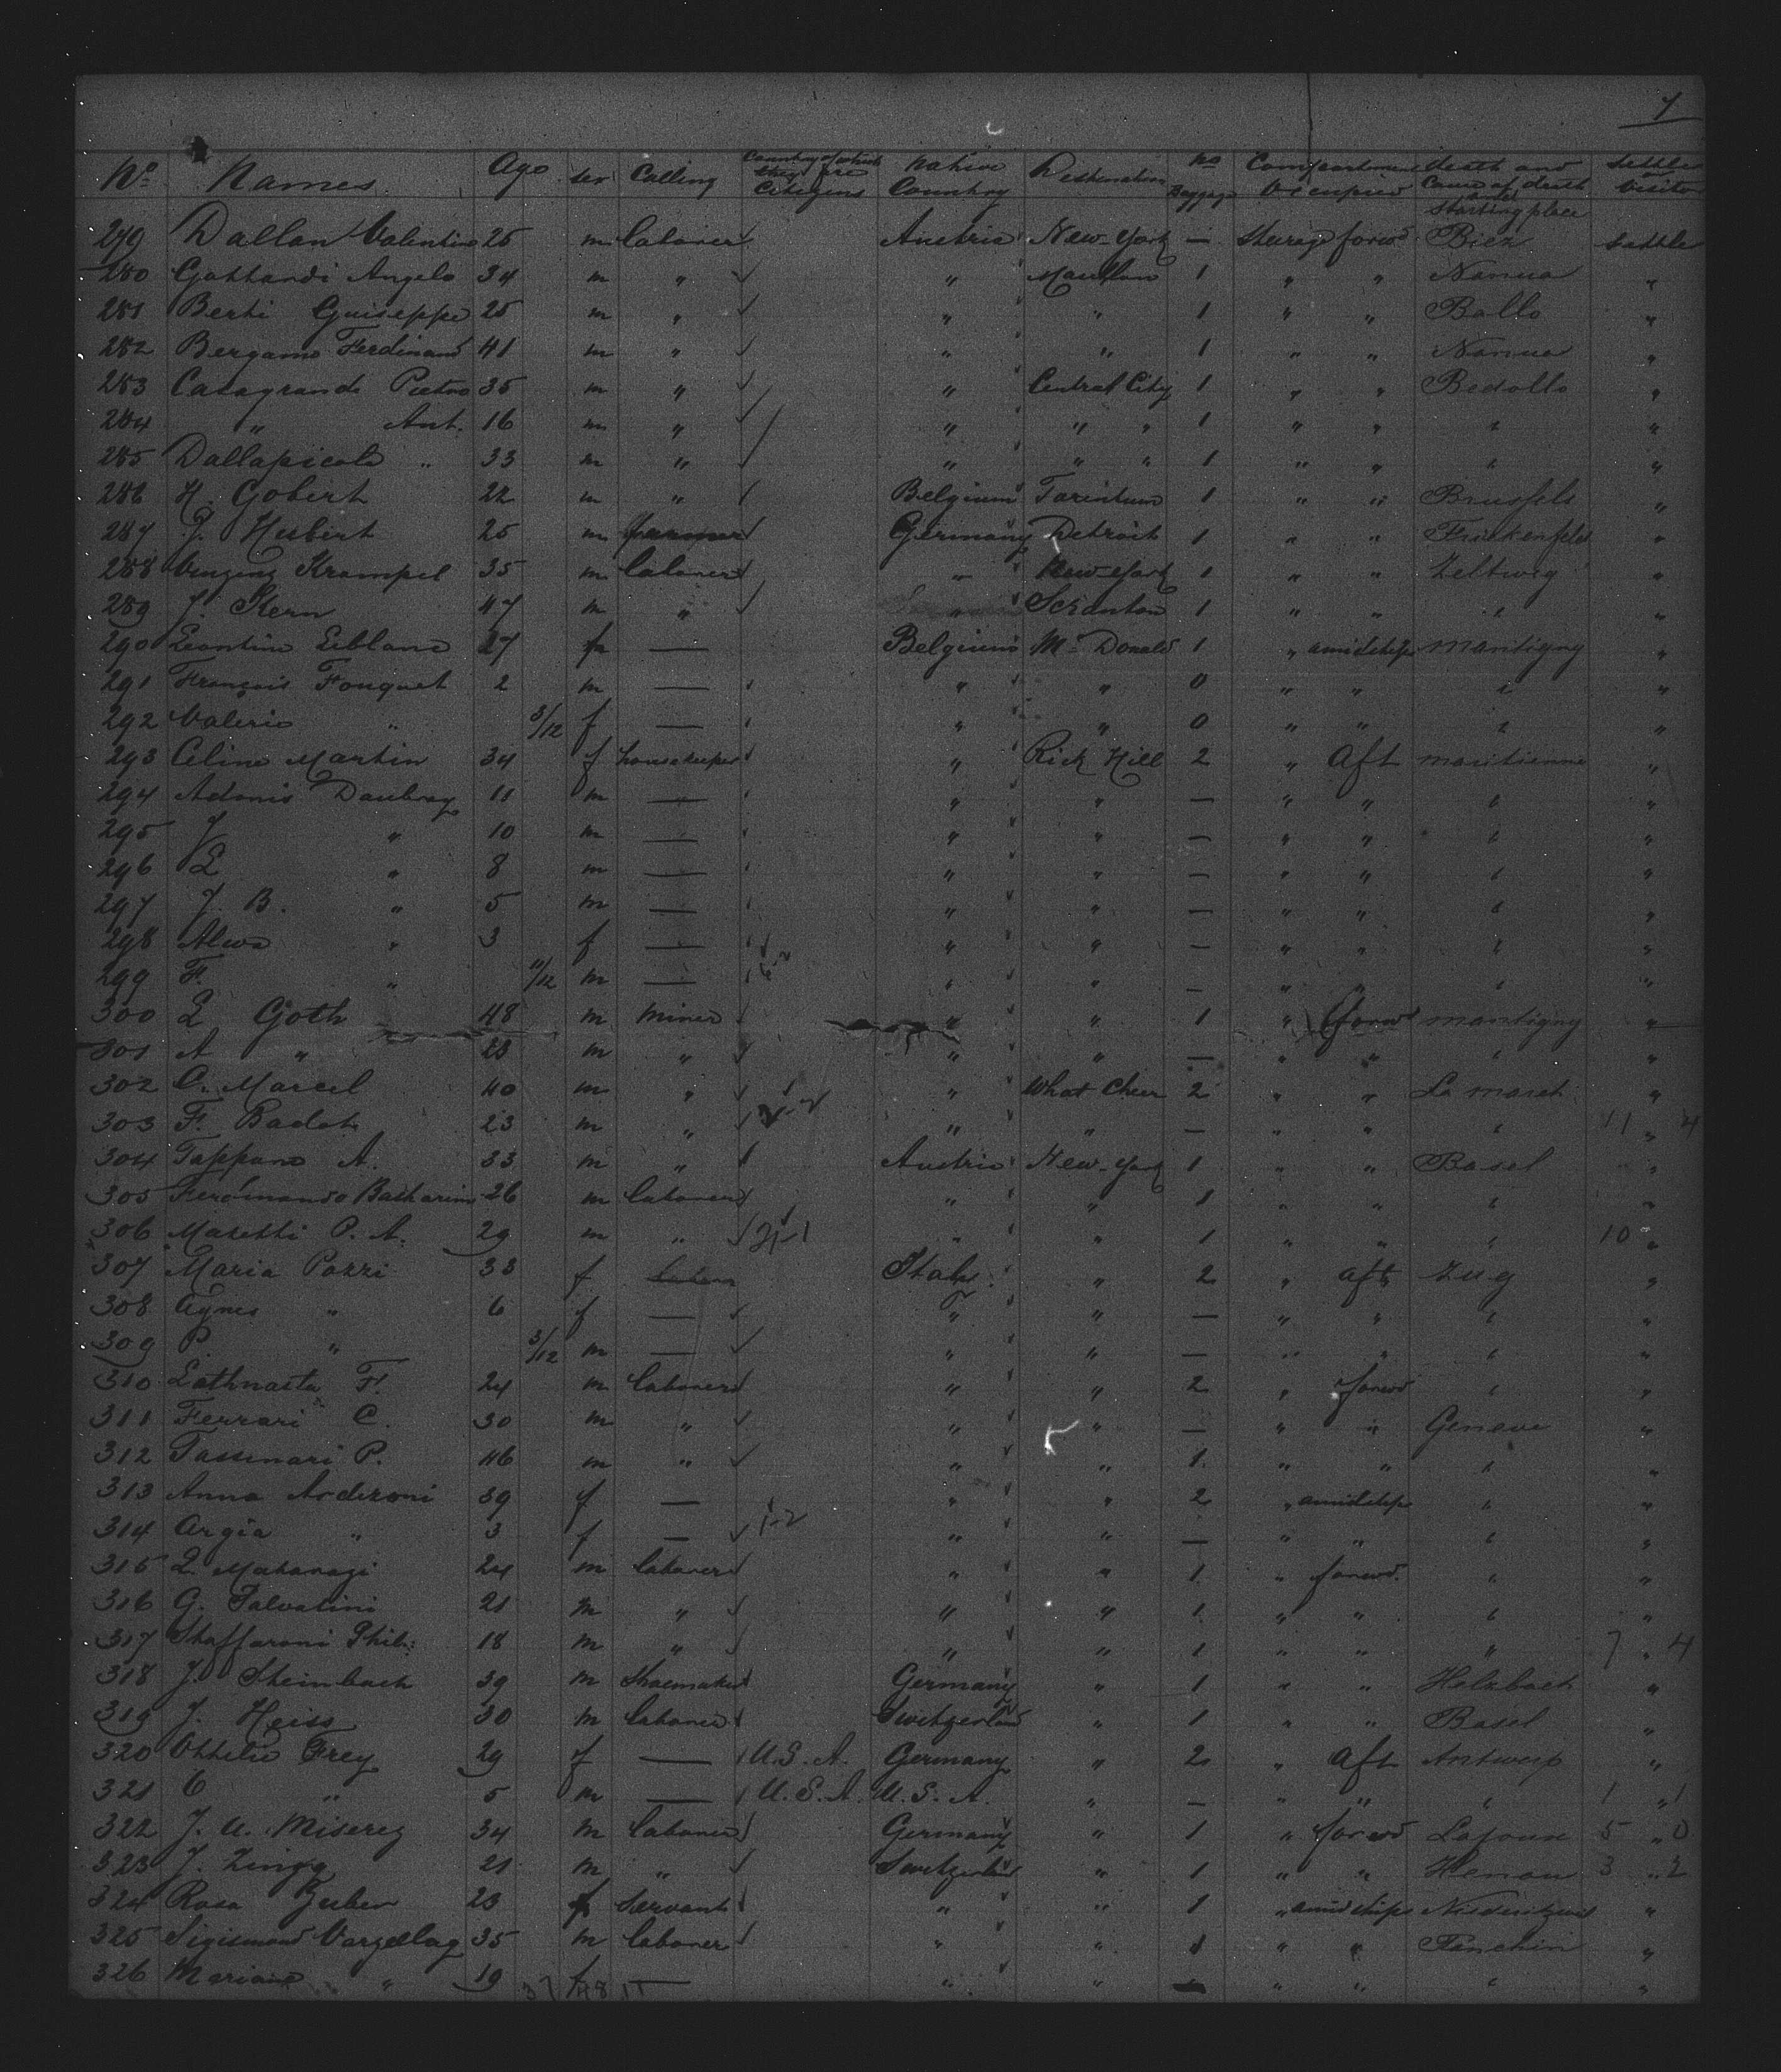 7
No. Names Age sex Calling Country of which they are Citizens Native Country Destination No Baggage Compartment Occupied death and Cause of death and Starting place Settler or Visitor
279 Dallan Valentino 25 m laborer Austria New-York — Steerage forwd Biez settler
280 Gottardi Angelo 34 m " " 1 " " Nanua "
281 Berti Guiseppe 25 m " " " 1 " " Ballo "
282 Bergamo Ferdinand 41 m " " " 1 " " Nanua "
283 Casagrande Pietro 35 m " " Central City 1 " " Bedollo "
284 " Ant. 16 m " " " " 1 " " " "
285 Dallapicola " 33 m " " " " 1 " " " "
286 H. Gobert 22 m " Belgium Tarentum 1 " " Brussels "
287 J. Hesbert 25 m farmer Germany Detroit 1 " " Frickenfeld "
288 Vinzenz Krampel 35 m laborer " New-York 1 " " Zeltweg "
289 J. Stern 47 m " " Scranton 1 " " " "
290 Leontine Leblanc 27 f — Belgium Mc Donald 1 " amidships "
291 François Fouquet 2 m — " " 0 " " " "
292 Valerie " 3/12 f — " " 0 " " " "
293 Celine Martin 34 f housekeeper " Rich Hill 2 " Aft "
294 Adonis Daubray 11 m — " " — " " " "
295 J " 10 m — " " — " " " "
296 E " 8 m — " " — " " " "
297 J. B. " 5 m — " " — " " " "
298 Alwa " 3 f — " " — " " " "
299 F. " 11/12 m — " " — " " " "
300 E Goth 48 m miner " " 1 " forwd "
301 A " 23 m " " " — " " " "
302 C. Marcel 40 m " " What Cheer 2 " " "
303 F. Badot 23 m " " " — " " " 11 " 4
304 Tappano A. 33 m " Austria New-York 1 " " Basel "
305 Ferdinando 26 m laborer " " 1 " " " "
306 Masetti P. A. 29 m " 21-1 " " 1 " " " 10 "
307 Maria Pozzi 33 f Italy " 2 " Aft Zug "
308 Agnes " 6 f — " " — " " " "
309 P. " 3/12 m — " " — " " " "
310 F. 24 m laborer " " 2 " forwd " "
311 Ferrari C. 30 m " " " — " " Geneve "
312 Tassinari P. 46 m " " " 1 " " " "
313 Anna Ardizoni 39 f — " " 2 " amidships " "
314 Argia " 3 f — 1-2 " " — " " " "
315 24 m laborer " " 1 " forwd. " "
316 G. Salvatini 21 m " " " 1 " " " "
317 Staffaroni Phil: 18 m " " " 1 " " " 7 " 4
318 J. Steinbach 39 m Shoemaker Germany " 1 " " Holzbach "
319 J. Heiss 30 m laborer Switzerland " 1 " " Basel "
320 Ottilie Frey 29 f — U.S.A. Germany " 2 " Aft Antwerp "
321 C " 5 m — U.S.A. U.S.A. " — " " " 1 " 1
322 J. U. Miserez 34 m laborer Germany " 1 " forwd 5 " 0
323 J. Zingg 21 m " Switzerland " 1 " " Henau 3 " 2
324 Rosa Guber 23 f Servant " " 1 " amidships "
325 Sigismond 35 m laborer " " 1 " " "
326 Mariane " 19 f — " " — " " " "